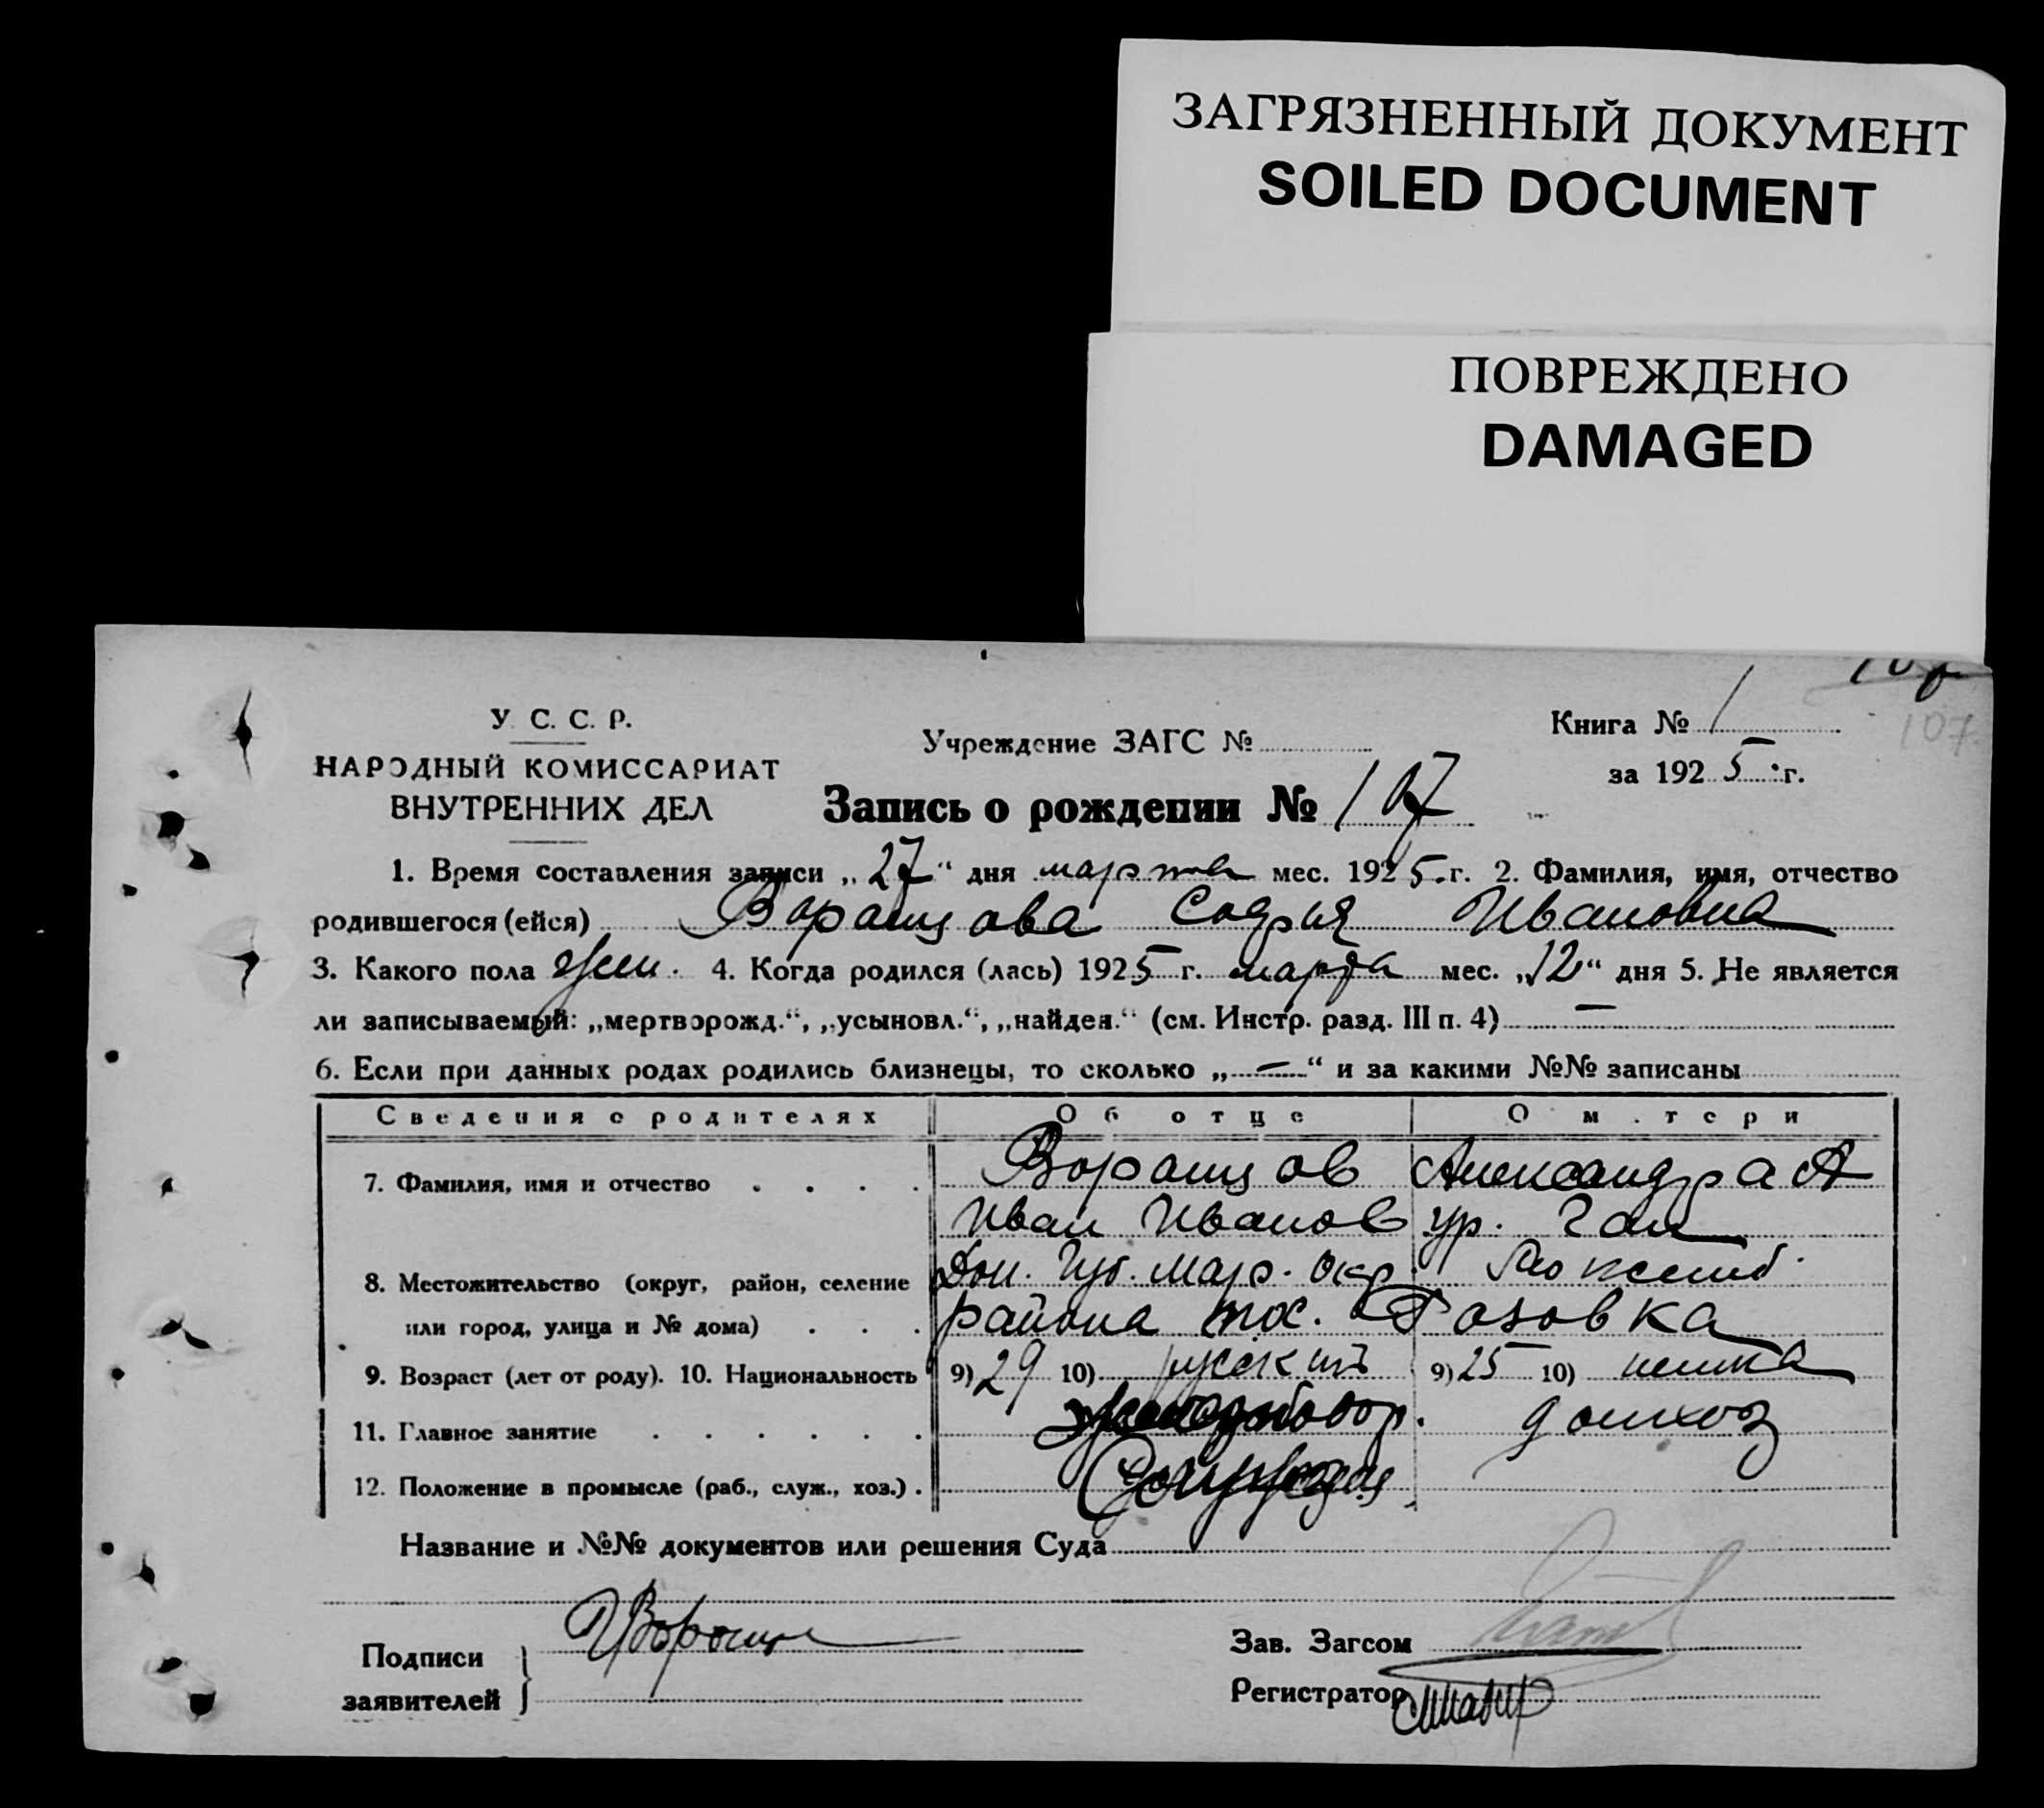 ЗАГРЯЗНЕННЫЙ ДОКУМЕНТ
SOILED DOCUMENT
ПОВРЕЖДЕНО
DAMAGED
У. С. С. Р.
НАРОДНЫЙ КОМИССАРИАТ
ВНУТРЕННИХ ДЕЛ
Учреждение ЗАГС №
Книга № 1
107
за 1925 г.
Запись о рождении № 107
1. Время составления записи „27“ дня марта мес. 1925 г. 2. Фамилия, имя, отчество
родившегося (ейся) Воранцова Софья Ивановна
3. Какого пола жен. 4. Когда родился (лась) 1925 г. марта мес. „12“ дня 5. Не является
ли записываемый: „мертворожд.“, „усыновл.“, „найден.“ (см. Инстр. разд. III п. 4) —
6. Если при данных родах родились близнецы, то сколько „—“ и за какими №№ записаны
Сведения о родителях Об отце О м.тери
7. Фамилия, имя и отчество . . . . Воранцов Александра А
Иван Иванов ур. Ган
8. Местожительство (округ, район, селение Дон. Губ. Мар. Окр.
или город, улица и № дома) . . . района пос. Розовка
9. Возраст (лет от роду). 10. Национальность 9) 29 10) русский 9) 25 10) немка
11. Главное занятие . . . . . . домхоз
12. Положение в промысле (раб., служ., хоз.) .
Название и №№ документов или решения Суда
Подписи
заявителей
Зав. Загсом
Регистратор